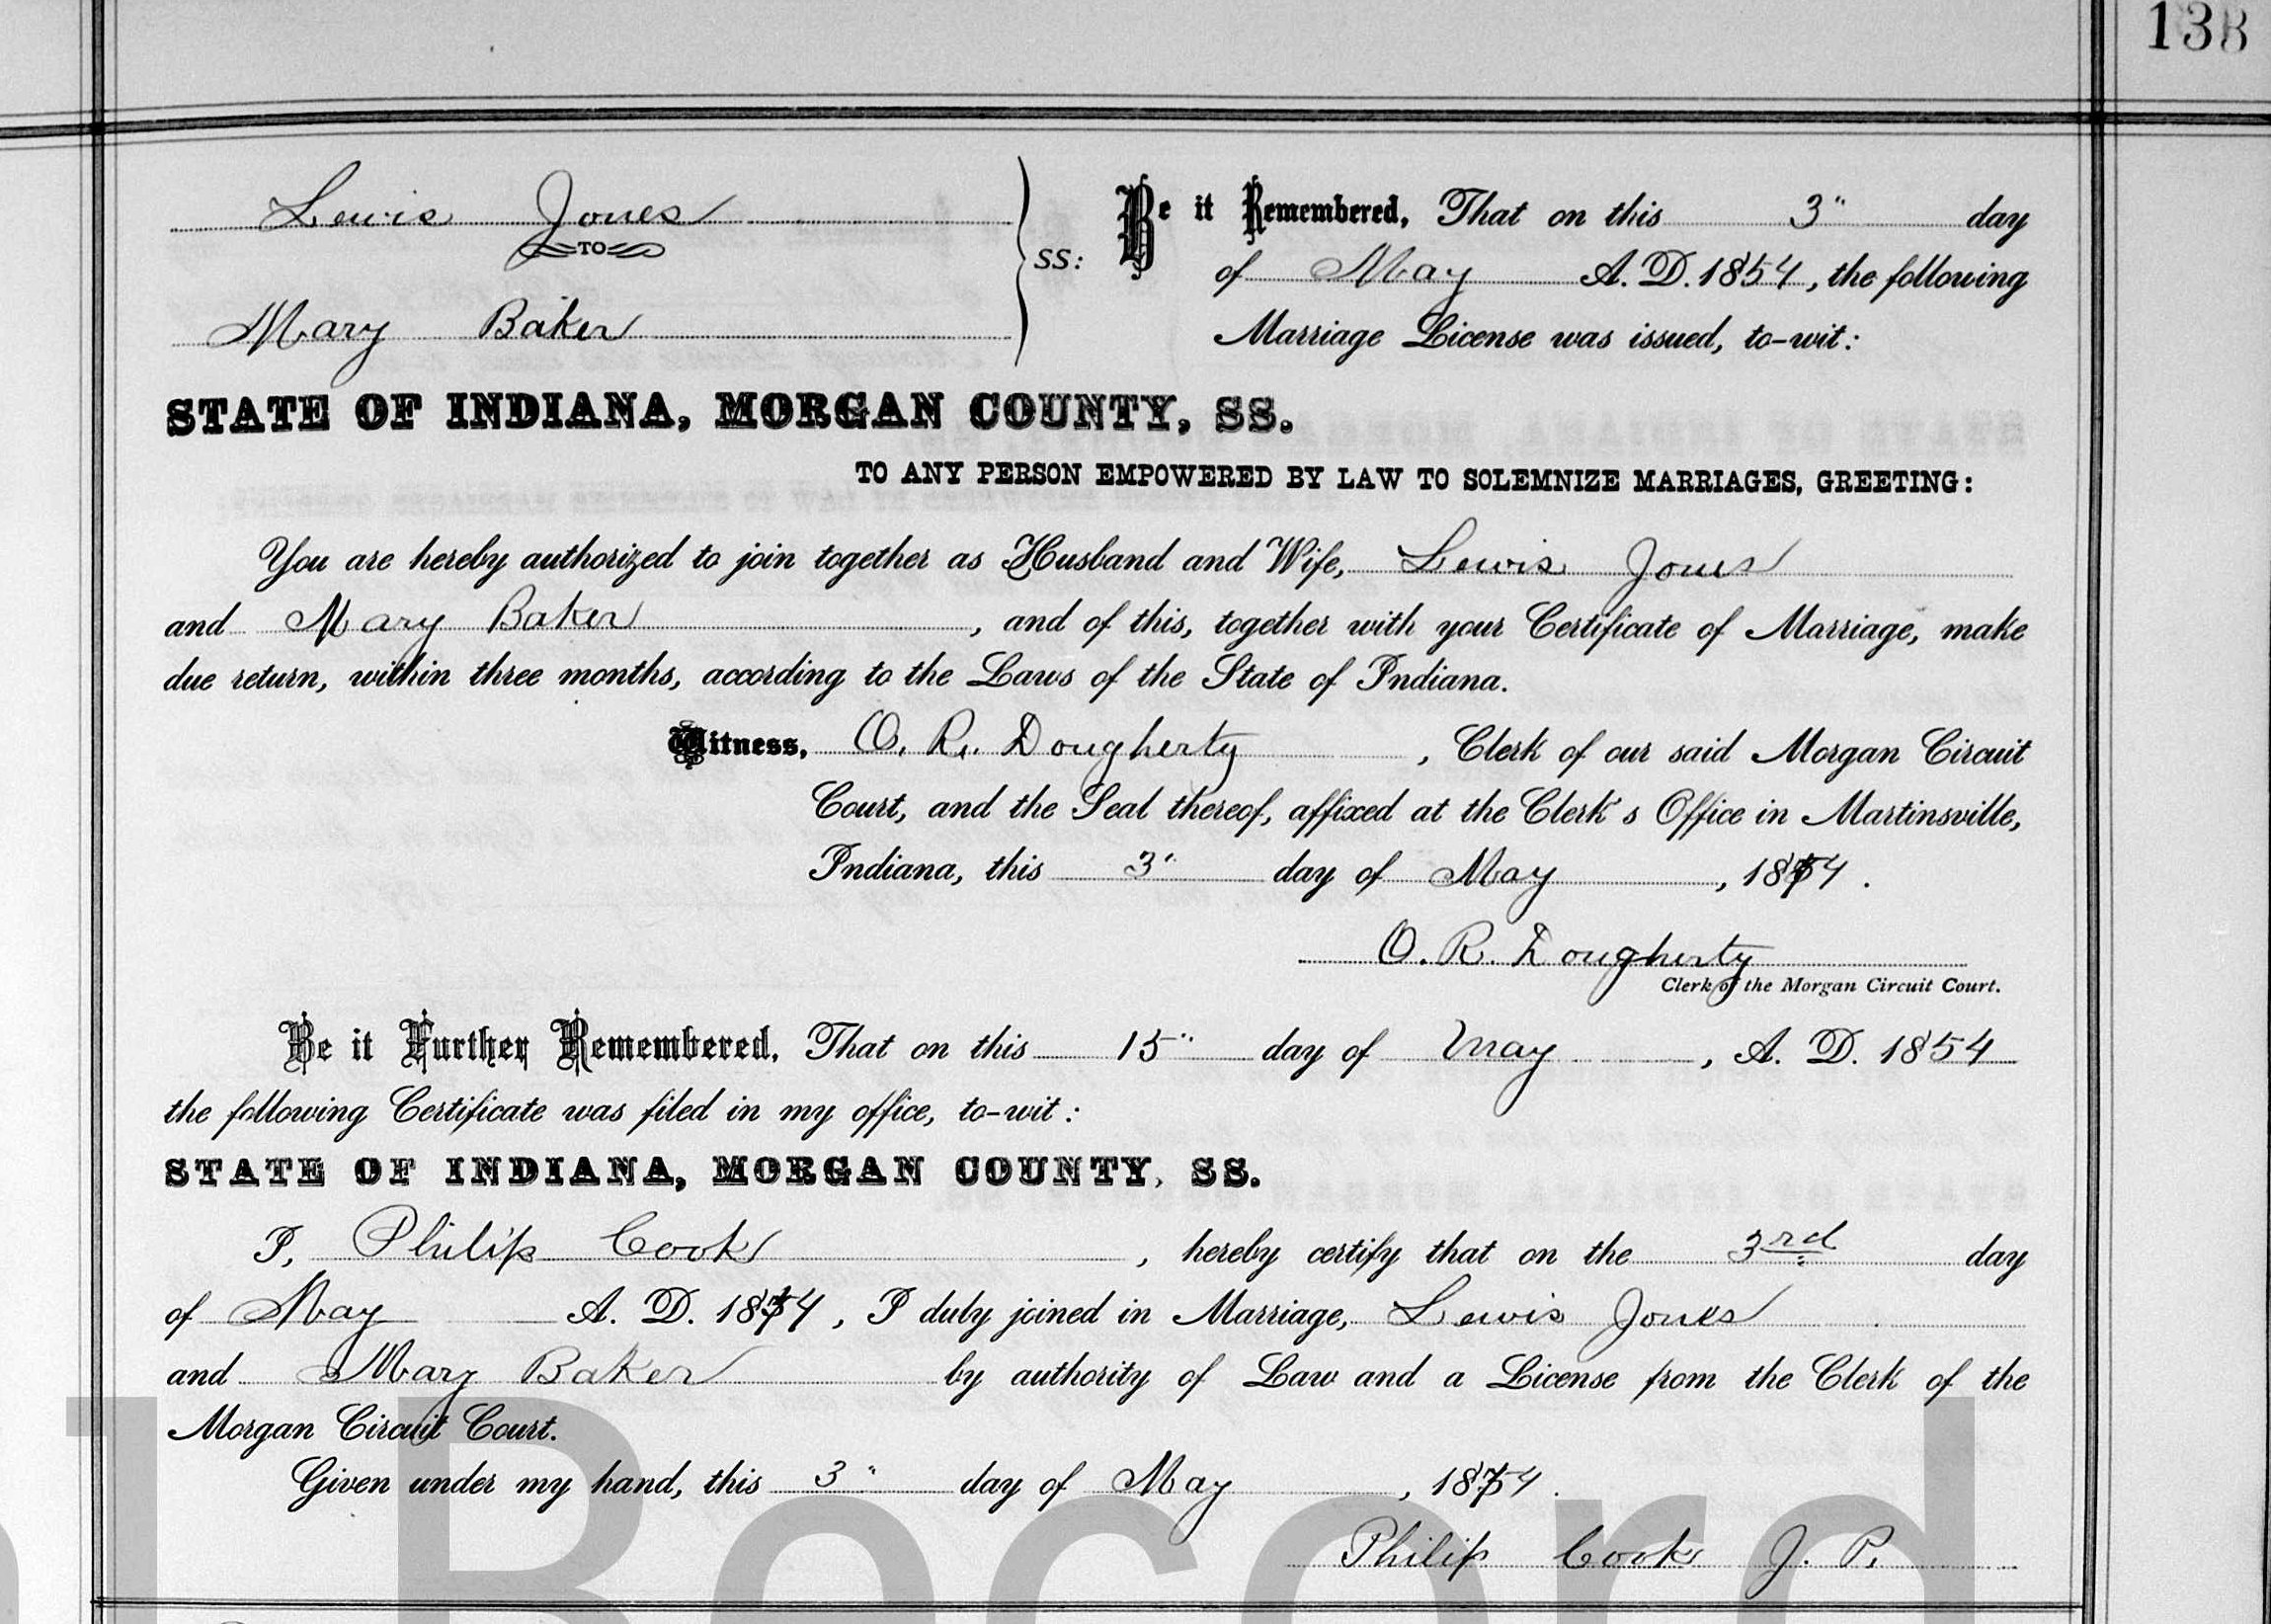 138
Lewis Jones
TO
Mary Baker
SS:
Be it Remembered, That on this 3" day
of May A. D. 1854, the following
Marriage License was issued, to-wit:
STATE OF INDIANA, MORGAN COUNTY, SS.
TO ANY PERSON EMPOWERED BY LAW TO SOLEMNIZE MARRIAGES, GREETING:
You are hereby authorized to join together as Husband and Wife, Lewis Jones
and Mary Baker, and of this, together with your Certificate of Marriage, make
due return, within three months, according to the Laws of the State of Indiana.
Witness, O. R. Dougherty, Clerk of our said Morgan Circuit
Court, and the Seal thereof, affixed at the Clerk's Office in Martinsville,
Indiana, this 3" day of May, 1854.
O. R. Dougherty
Clerk of the Morgan Circuit Court.
Be it Further Remembered, That on this 15" day of May, A. D. 1854
the following Certificate was filed in my office, to-wit:
STATE OF INDIANA, MORGAN COUNTY, SS.
I, Philip Cook, hereby certify that on the 3rd day
of May A. D. 1854, I duly joined in Marriage, Lewis Jones
and Mary Baker by authority of Law and a License from the Clerk of the
Morgan Circuit Court.
Given under my hand, this 3" day of May, 1854.
Philip Cook J. P.
Record